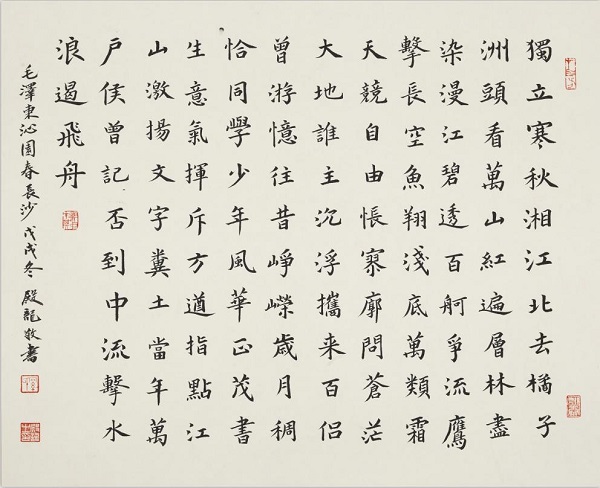 獨立寒秋湘江北去橘子
洲頭看萬山紅遍層林盡
染漫江碧透百舸爭流鷹
擊長空魚翔淺底萬類霜
天競自由悵寥廓問蒼茫
大地誰主沉浮攜来百侣
曾游憶往昔崢嶸歲月稠
恰同學少年風華正茂書
生意氣揮斥方遒指點江
山激揚文字糞土當年萬
户侯曾記否到中流擊水
浪遏飛舟
毛澤東沁園春長沙戊戌冬殿龍敬書